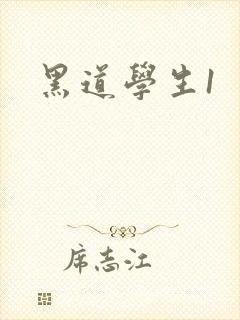 黑道學生1
席志江